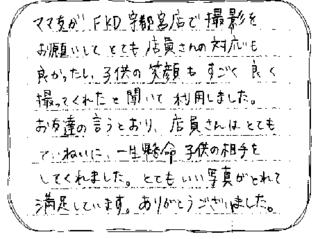 ママ友が、FKD宇都宮店で撮影を
お願いしてとても店員さんの対応も
良かったし、子供の笑顔もすごく良く
撮ってくれたと聞いて利用しました。
お友達の言うとおり、店員さんはとても
ていねいに、一生懸命子供の相手を
してくれました。とてもいい写真がとれて
満足しています。ありがとうございました。